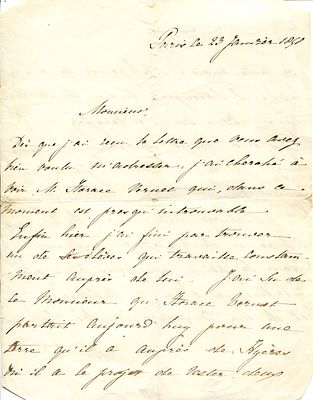 Paris le 23 Janvier 1851
Monsieur,
Dès que j'ai reçu la lettre que vous avez
bien voulu m'adresser, j'ai cherché à
voir M. Horace Vernet qui, dans ce
moment est presqu'introuvable
Enfin hier, j'ai fini par trouver
un de ses élèves qui travaille constam-
ment auprès de lui J'ai su de
ce Monsieur qu'Horace Vernet
partait aujourd'huy pour une
terre qu'il a auprès de Hyères
où il a le projet de rester deux